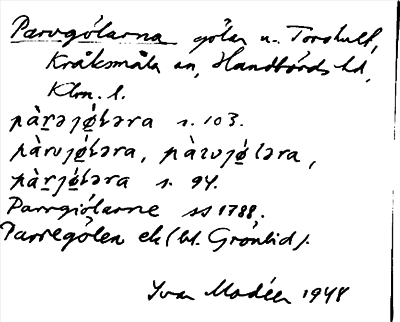 Parvgölarna gölar n. Torshult,
Kråksmåla sn, Handbörds hd,
Klm. l.
pàrəjø̀ləra s. 103.
pàrvjø̀ləra, pàrvjø̀ləra,
pàrjø̀ləra s. 94.
Parrgiölarne ss 1788.
Parregölen ek (bl. Grönlid).
Ivar Modéer 1948